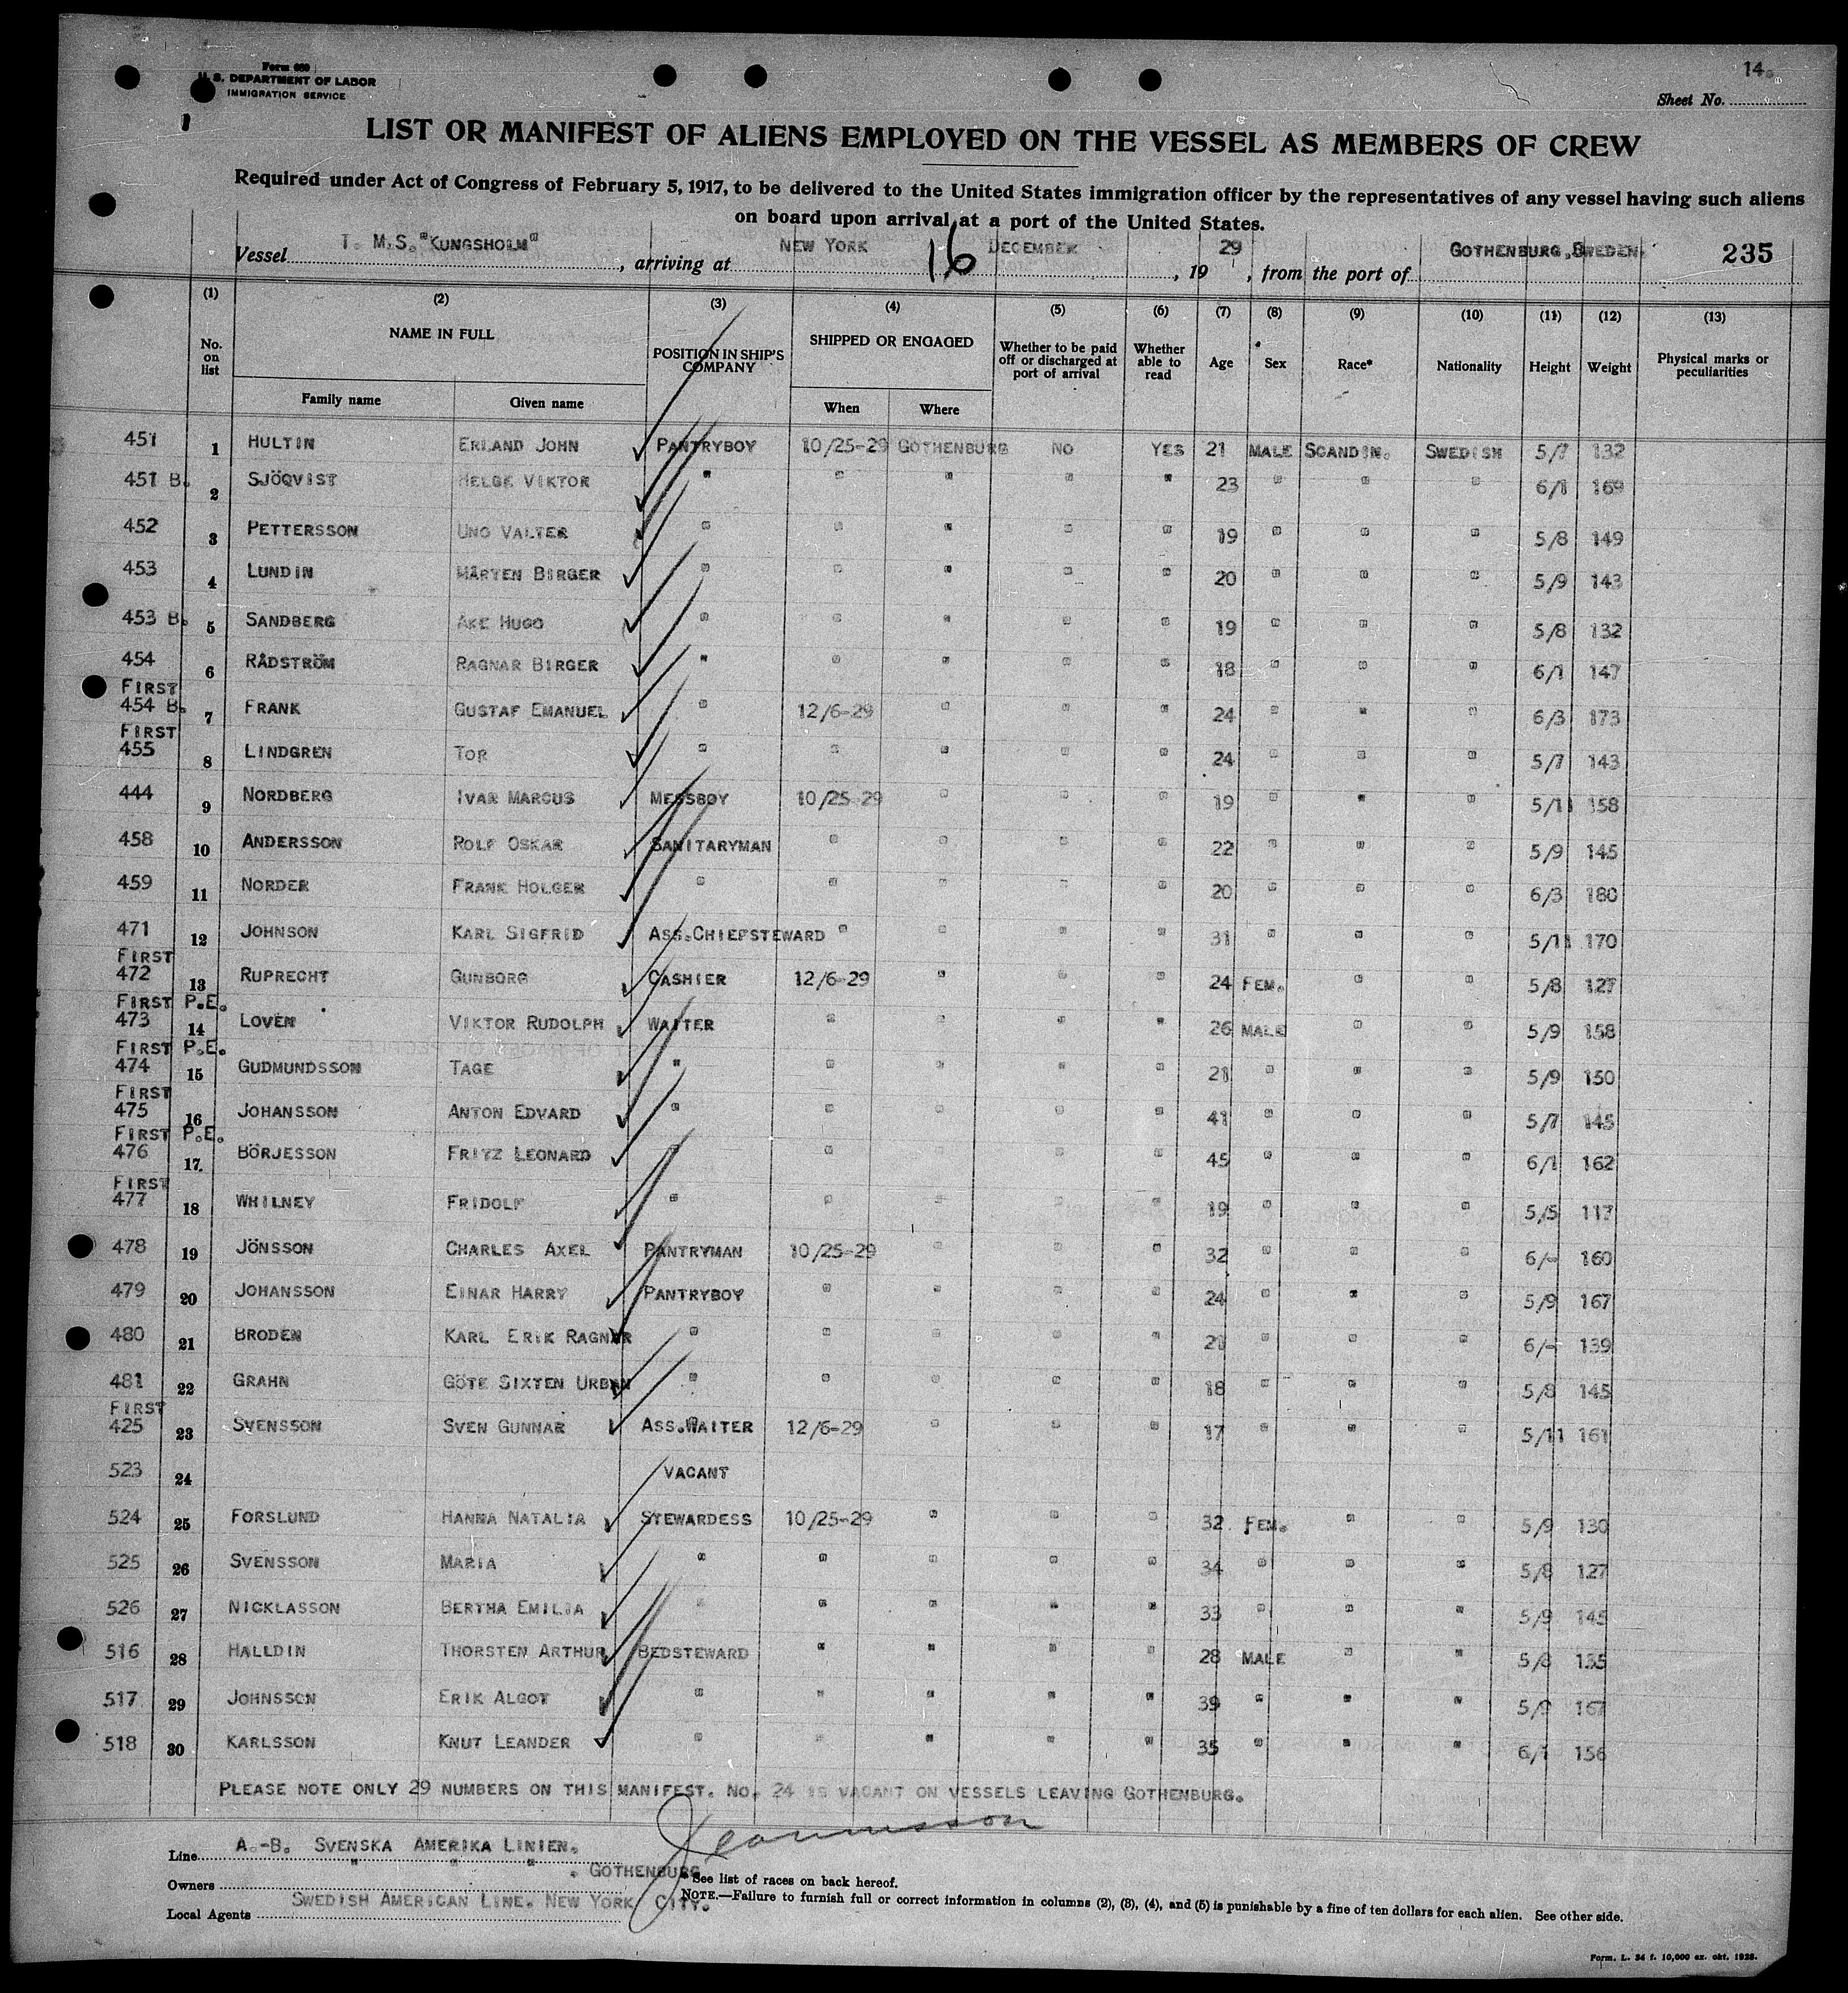 14.
Form 680
U. S. DEPARTMENT OF LABOR
IMMIGRATION SERVICE
Sheet No.
LIST OR MANIFEST OF ALIENS EMPLOYED ON THE VESSEL AS MEMBERS OF CREW
Required under Act of Congress of February 5, 1917, to be delivered to the United States immigration officer by the representatives of any vessel having such aliens
on board upon arrival at a port of the United States.
Vessel T. M.S."KUNGSHOLM", arriving at NEW YORK 16 DECEMBER, 1929, from the port of GOTHENBURG,SWEDEN. 235
(1) (2) (3) (4) (5) (6) (7) (8) (9) (10) (11) (12) (13)
No. on list NAME IN FULL POSITION IN SHIP'S COMPANY SHIPPED OR ENGAGED Whether to be paid off or discharged at port of arrival Whether able to read Age Sex Race* Nationality Height Weight Physical marks or peculiarities
Family name Given name When Where
451 1 HULTIN ERLAND JOHN PANTRYBOY 10/25-29 GOTHENBURG NO YES 21 MALE SCANDIN. SWEDISH 5/7 132
451 B. 2 SJÖQVIST HELGE VIKTOR " " " " " 23 " " " 6/1 169
452 3 PETTERSSON UNO VALTER " " " " " 19 " " " 5/8 149
453 4 LUNDIN MÅRTEN BIRGER " " " " " 20 " " " 5/9 143
453 B. 5 SANDBERG AKE HUGO " " " " " 19 " " " 5/8 132
454 6 RÅDSTRÖM RAGNAR BIRGER " " " " " 18 " " " 6/1 147
FIRST
454 B. 7 FRANK GUSTAF EMANUEL " 12/6-29 " " " 24 " " " 6/3 173
FIRST
455 8 LINDGREN TOR " " " " " 24 " " " 5/7 143
444 9 NORDBERG IVAR MARCUS MESSBOY 10/25-29 " " " 19 " " " 5/11 158
458 10 ANDERSSON ROLF OSKAR SANITARYMAN " " " " 22 " " " 5/9 145
459 11 NORDER FRANK HOLGER " " " " " 20 " " " 6/3 180
471 12 JOHNSON KARL SIGFRID ASS.CHIEFSTEWARD " " " " 31 " " " 5/11 170
FIRST
472 13 RUPRECHT GUNBORG CASHIER 12/6-29 " " " 24 FEM. " " 5/8 127
FIRST P.E.
473 14 LOVEN VIKTOR RUDOLPH WAITER " " " " 26 MALE " " 5/9 158
FIRST P.E.
474 15 GUDMUNDSSON TAGE " " " " " 21 " " " 5/9 150
FIRST
475 16 JOHANSSON ANTON EDVARD " " " " " 41 " " " 5/7 145
FIRST P.E.
476 17 BÖRJESSON FRITZ LEONARD " " " " " 45 " " " 6/1 162
FIRST
477 18 WHILNEY FRIDOLF " " " " " 19 " " " 5/5 117
478 19 JÖNSSON CHARLES AXEL PANTRYMAN 10/25-29 " " " 32 " " " 6/- 160
479 20 JOHANSSON EINAR HARRY PANTRYBOY " " " " 24 " " " 5/9 167
480 21 BRODEN KARL ERIK RAGNAR " " " " " 21 " " " 6/- 139
481 22 GRAHN GÖTE SIXTEN URBAN " " " " " 18 " " " 5/8 145
FIRST
425 23 SVENSSON SVEN GUNNAR ASS.WAITER 12/6-29 " " " 17 " " " 5/11 161
523 24 VACANT
524 25 FORSLUND HANNA NATALIA STEWARDESS 10/25-29 " " " 32 FEM. " " 5/9 130
525 26 SVENSSON MARIA " " " " " 34 " " " 5/8 127
526 27 NICKLASSON BERTHA EMILIA " " " " " 33 " " " 5/9 145
516 28 HALLDIN THORSTEN ARTHUR BEDSTEWARD " " " " 28 MALE " " 5/8 135
517 29 JOHNSSON ERIK ALGOT " " " " " 39 " " " 5/9 167
518 30 KARLSSON KNUT LEANDER " " " " " 35 " " " 6/1 156
PLEASE NOTE ONLY 29 NUMBERS ON THIS MANIFEST. NO. 24 IS VACANT ON VESSELS LEAVING GOTHENBURG.
Line A.-B. SVENSKA AMERIKA LINIEN.
Owners " " " . GOTHENBURG
Local Agents SWEDISH AMERICAN LINE. NEW YORK CITY.
* See list of races on back hereof.
NOTE.—Failure to furnish full or correct information in columns (2), (3), (4), and (5) is punishable by a fine of ten dollars for each alien. See other side.
Form. L. 34 f. 10,000 ex. okt. 1928.